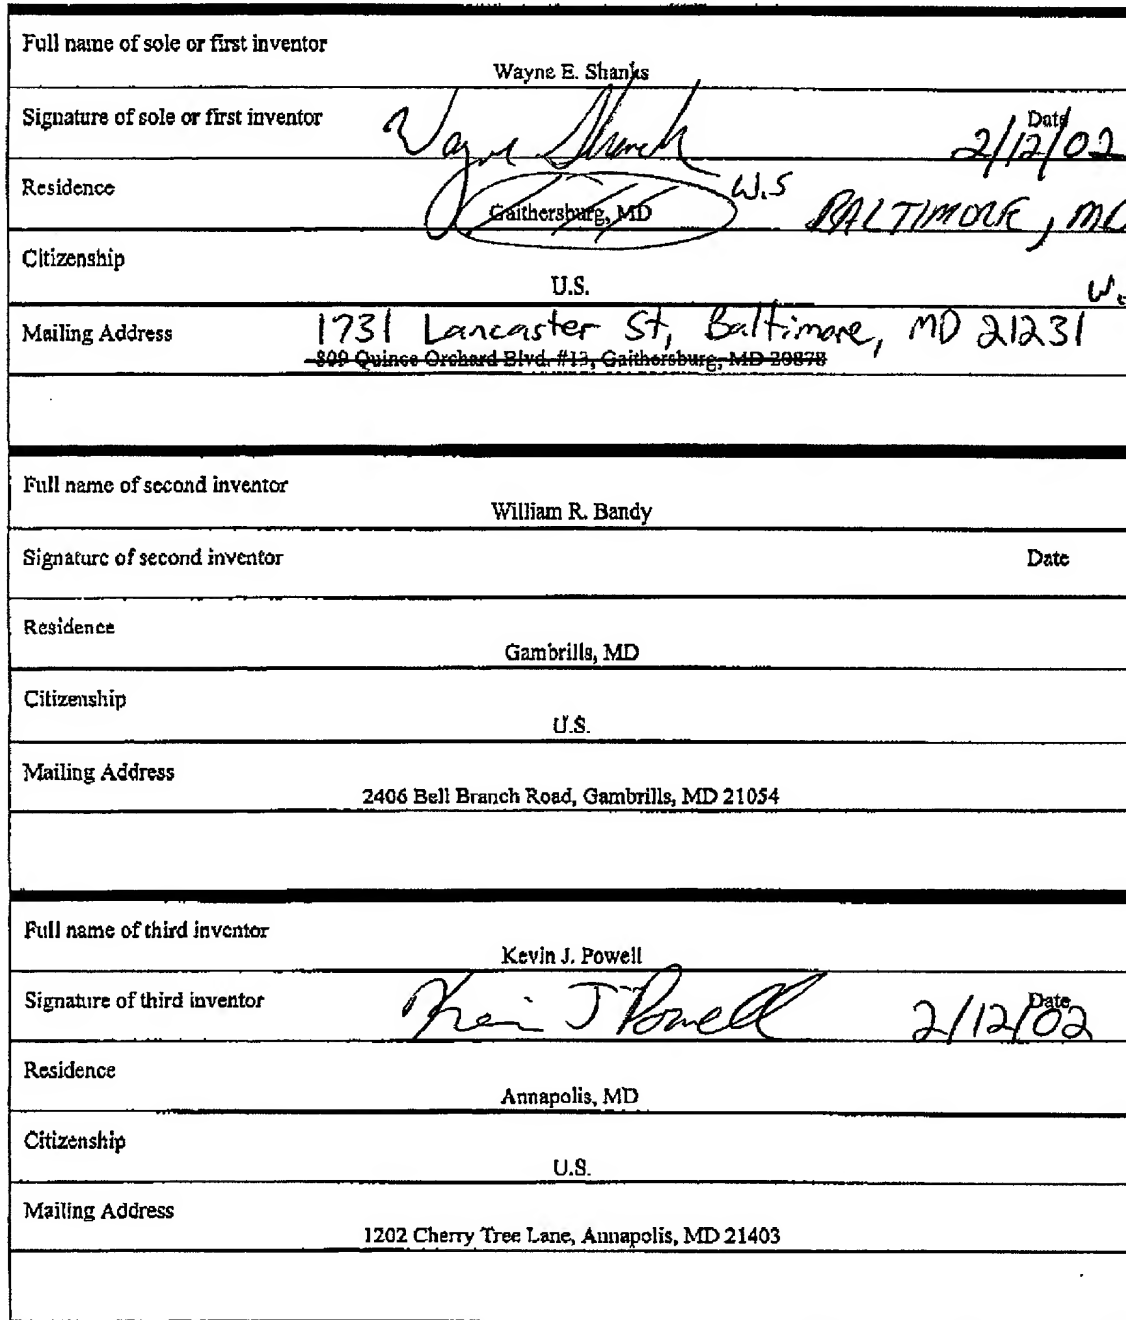 Full name of sole or first inventor
Wayne E. Shanks
Signature of sole or first inventor
Wayne Shanks
Date
2/12/02
Residence
Gaithersburg, MD
W.S
BALTIMORE, MD
Citizenship
U.S.
W.
Mailing Address
1731 Lancaster St, Baltimore, MD 21231
809 Quince Orchard Blvd. #13, Gaithersburg, MD 20878
Full name of second inventor
William R. Bandy
Signature of second inventor
Date
Residence
Gambrills, MD
Citizenship
U.S.
Mailing Address
2406 Bell Branch Road, Gambrills, MD 21054
Full name of third inventor
Kevin J. Powell
Signature of third inventor
Kevin J Powell
Date
2/12/02
Residence
Annapolis, MD
Citizenship
U.S.
Mailing Address
1202 Cherry Tree Lane, Annapolis, MD 21403